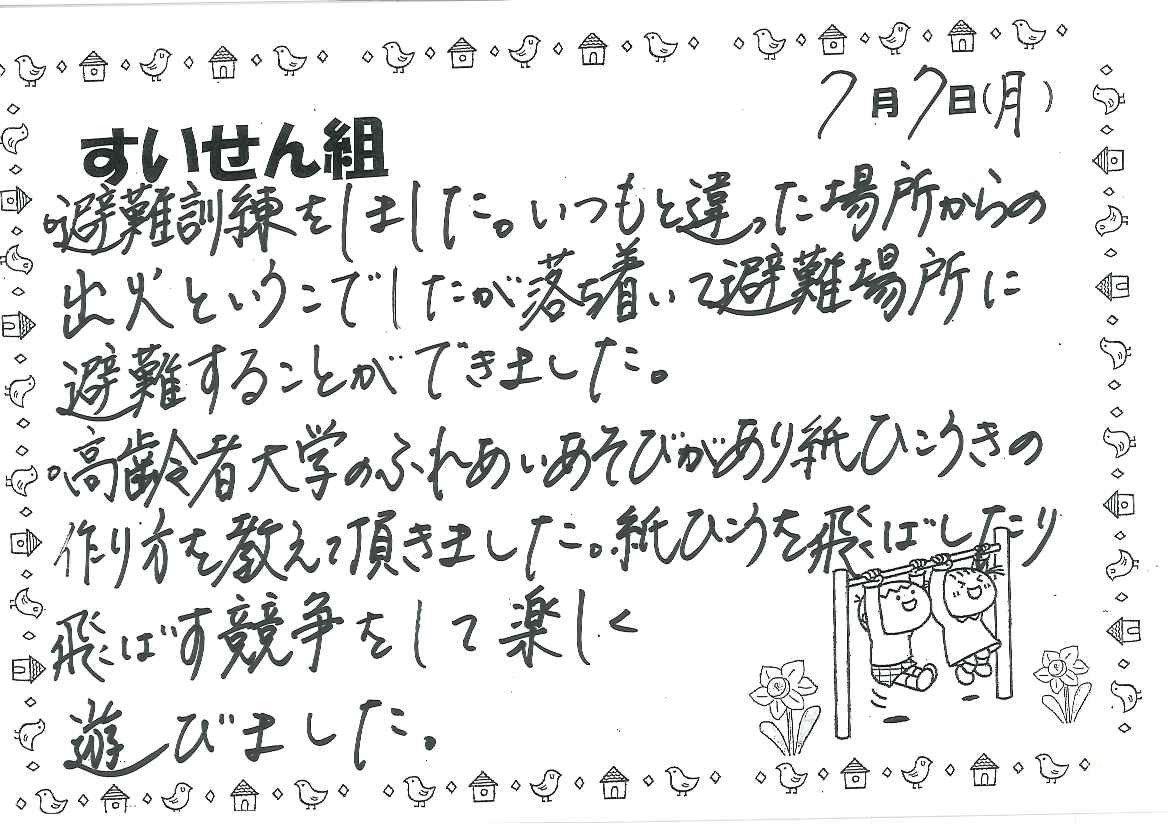 7月7日(月)
すいせん組
・避難訓練をしました。いつもと違った場所からの
出火というこでしたが落ち着いて避難場所に
避難することができました。
・高齢者大学のふれあいあそびがあり紙ひこうきの
作り方を教えて頂きました。紙ひこうを飛ばしたり
飛ばす競争をして楽しく
遊びました。